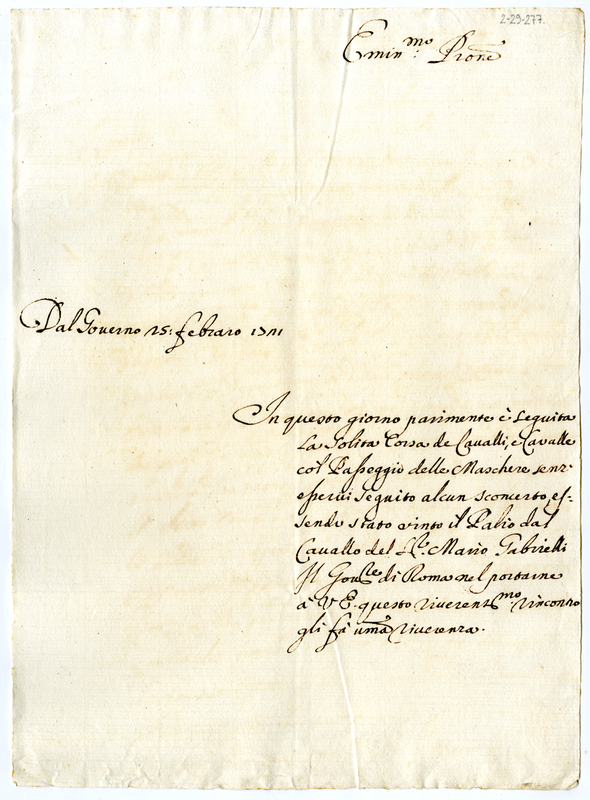 2-29-277.
Emin.mo Prone
Dal Governo 25: febraro 1711
In questo giorno parimente è seguita
la solita Corsa de Cavalli, e Cavalle
col Passeggio delle Maschere senz'
esservi seguito alcun sconcerto, es-
sendo stato vinto il Palio dal
Cavallo del Sr. Mario Gabrielli
Il Gov.re di Roma nel portarne
à V E. questo riverent.mo rincontro
gli fà uma riverenza.